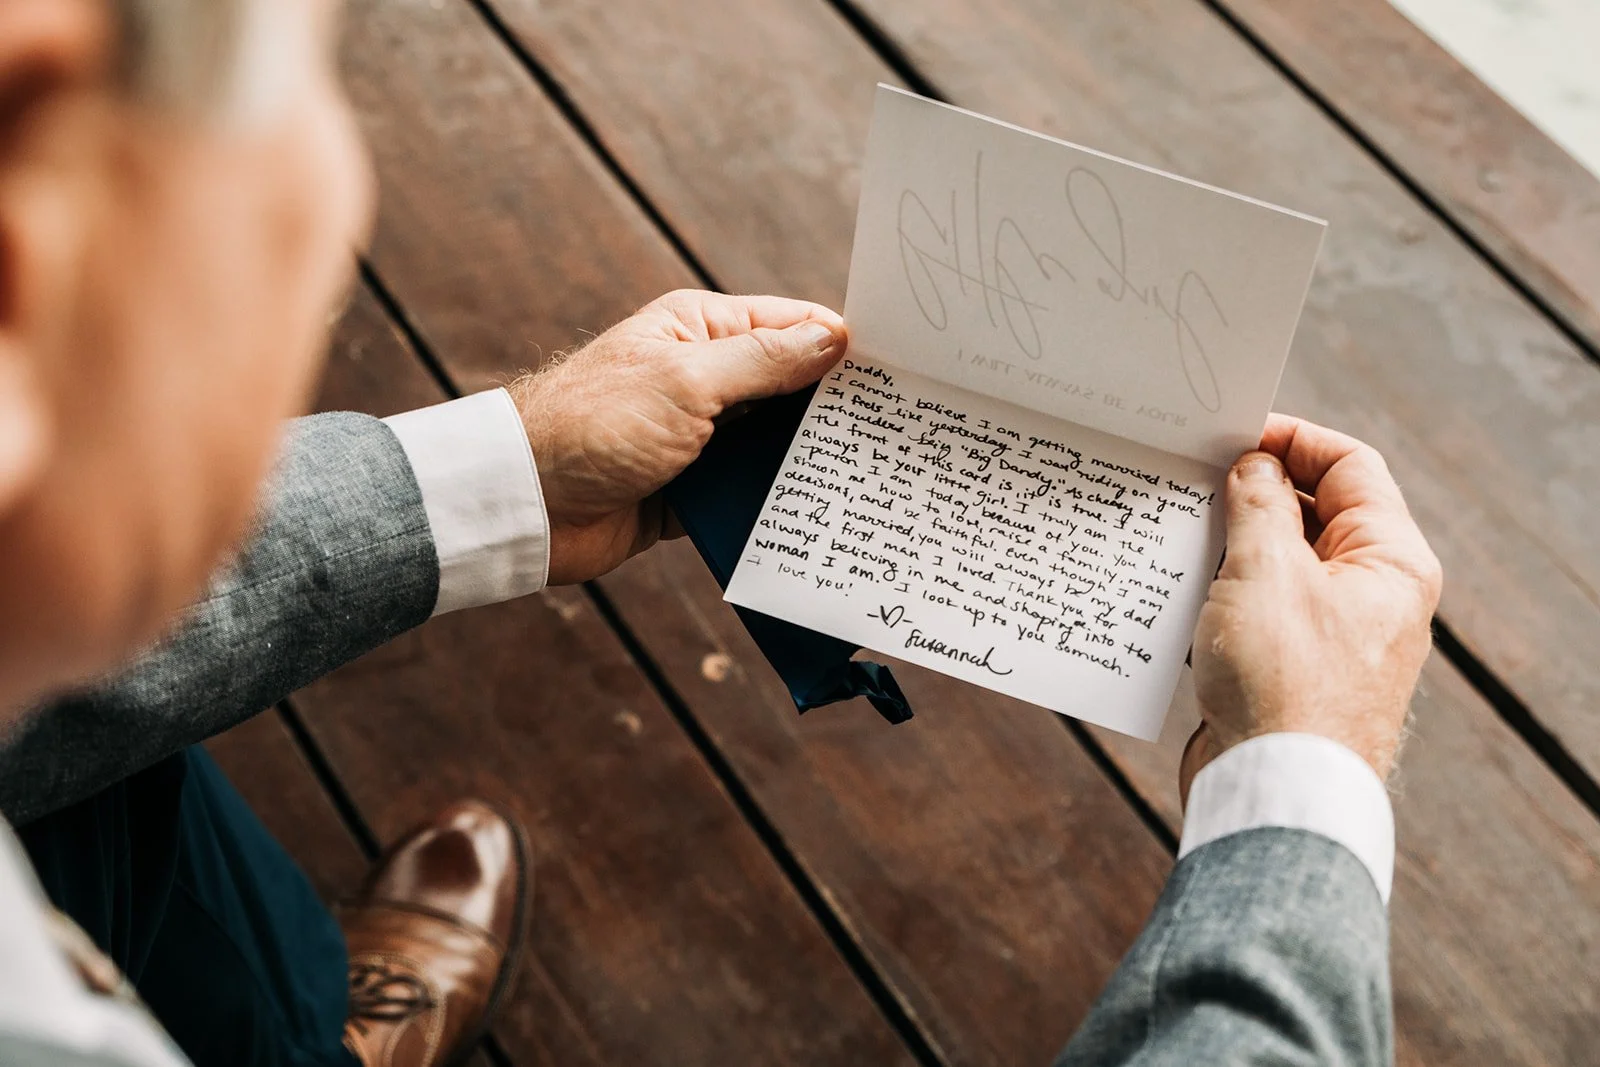 I WILL ALWAYS BE YOUR
little girl
Daddy,
I cannot believe I am getting married today!
It feels like yesterday I was riding on your
shoulders being "Big Dandy." As cheesy as
the front of this card is, it is true. I will
always be your little girl. I truly am the
person I am today because of you. You have
shown me how to love, raise a family, make
decisions, and be faithful. Even though I am
getting married, you will always be my dad
and the first man I loved. Thank you for
always believing in me and shaping me into the
woman I am. I look up to you somuch.
I love you!
Susannah